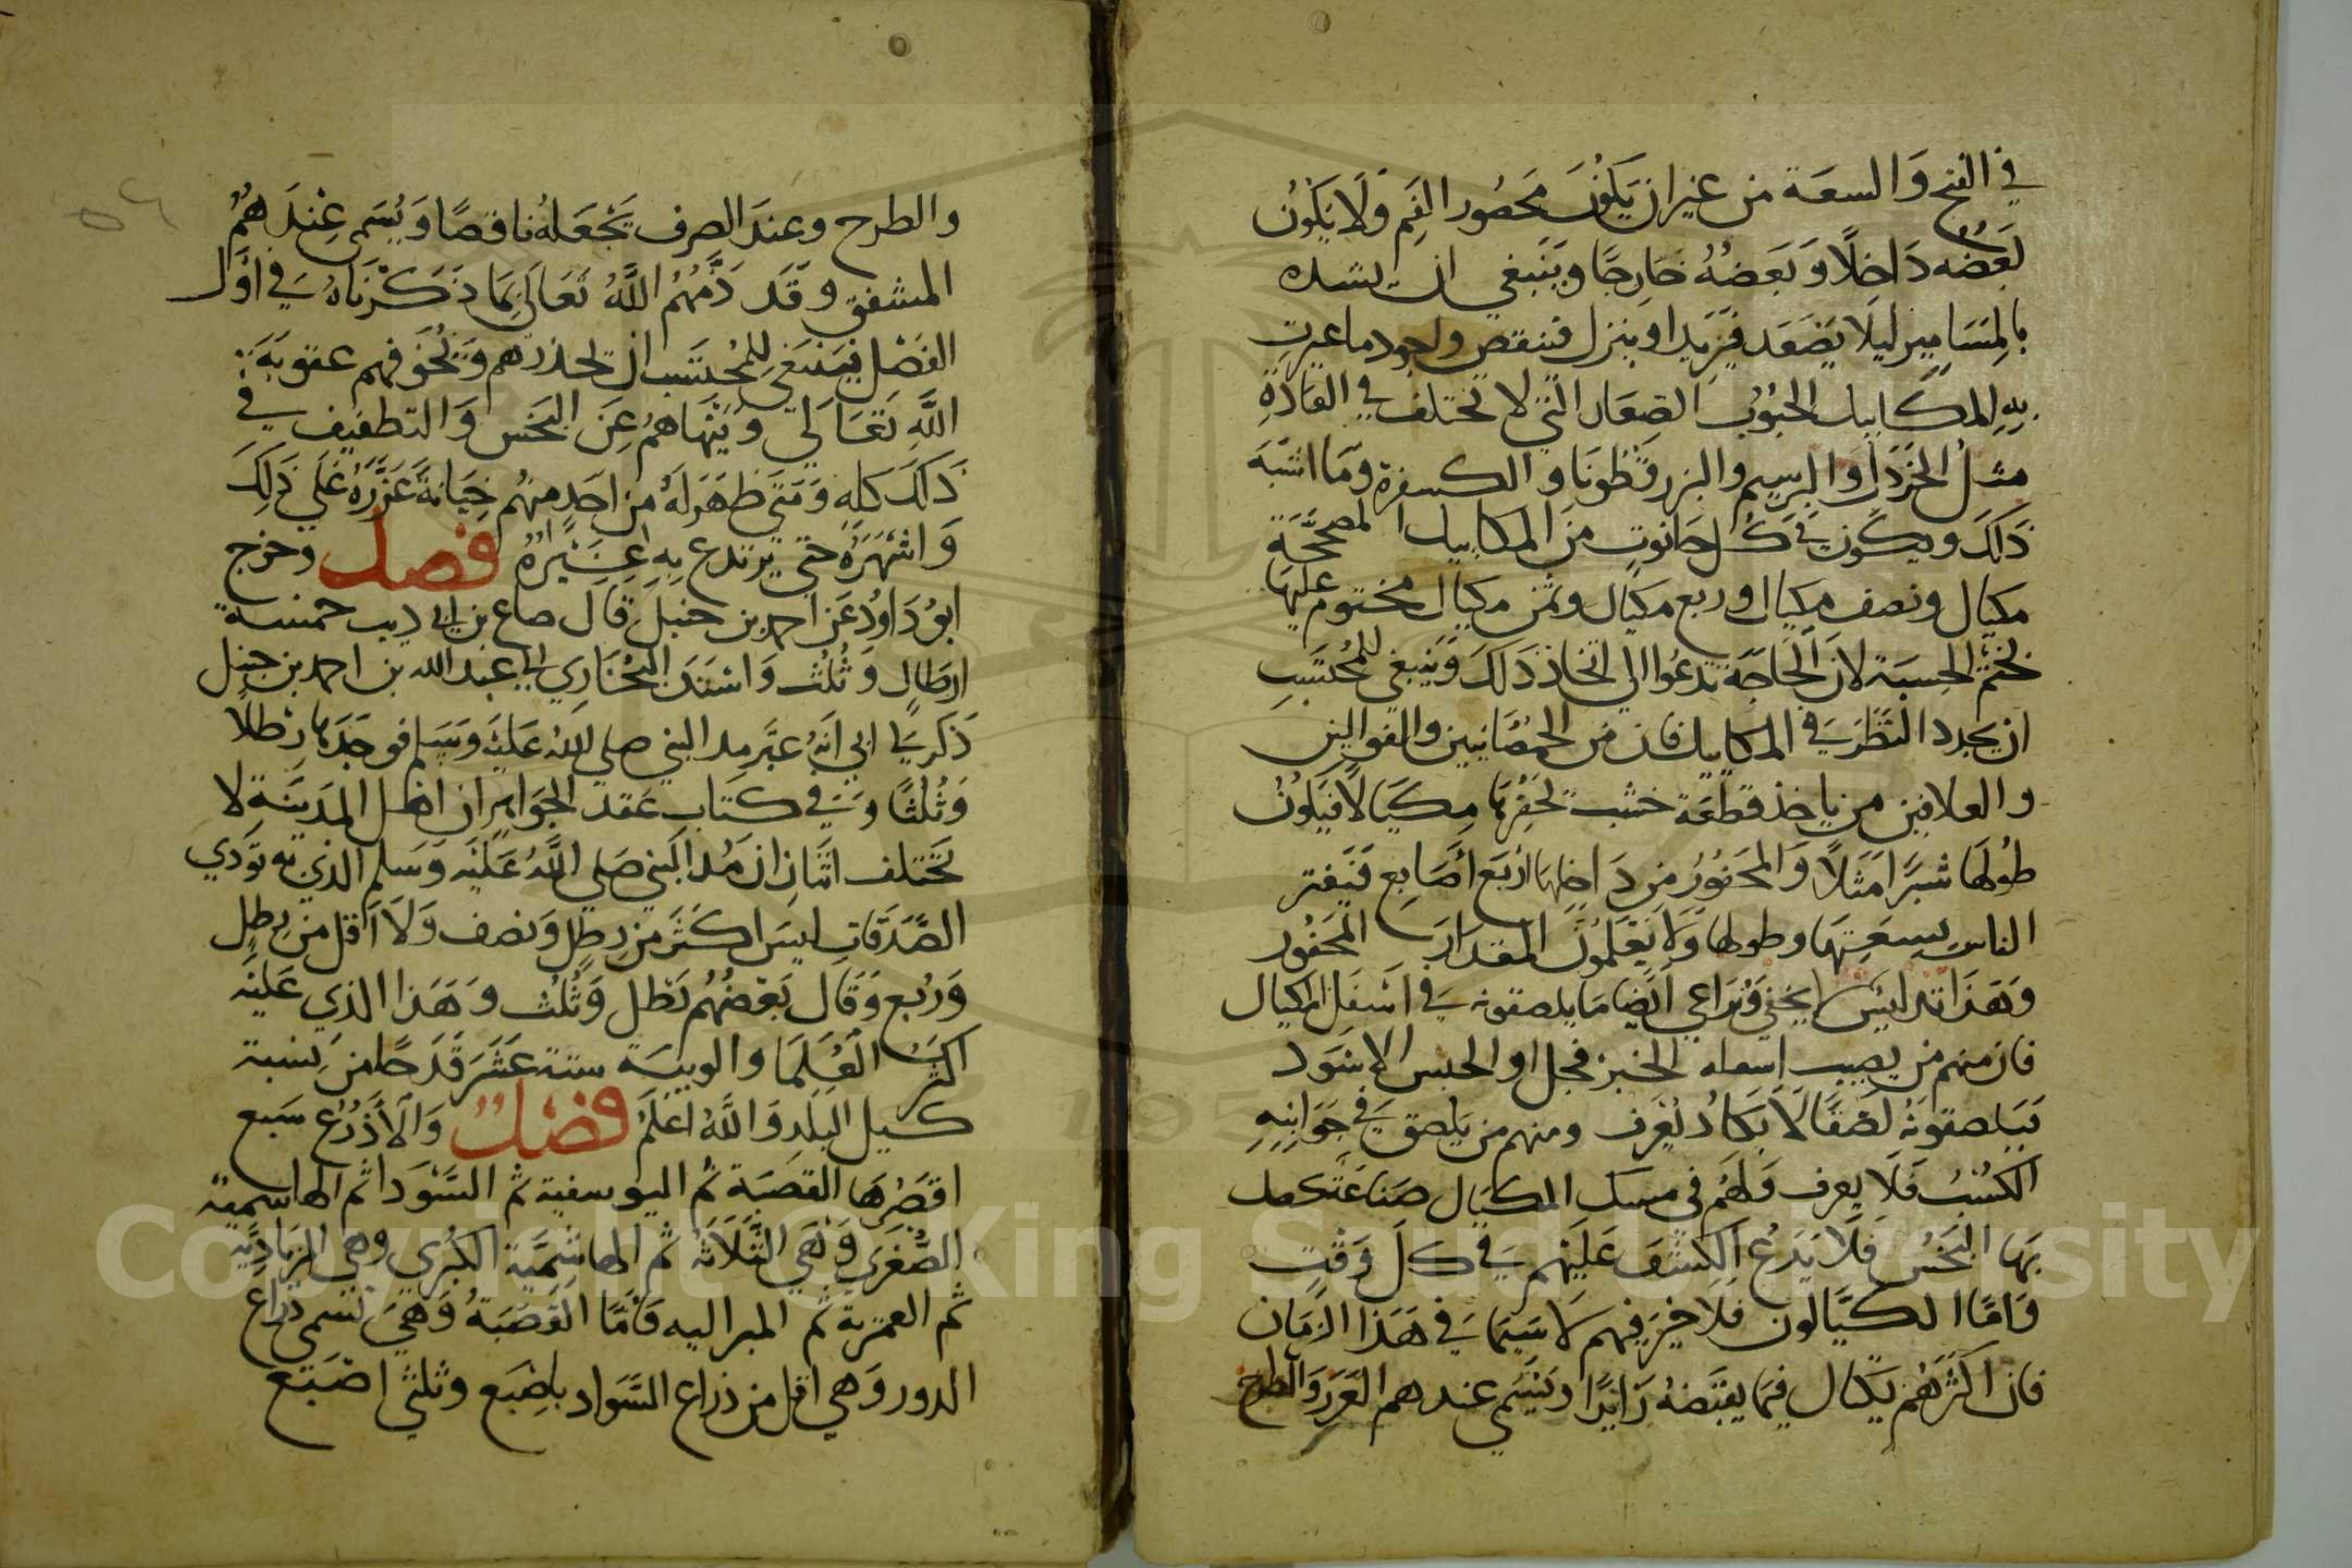 في الفتح والسعة من غير ان يكون محصور الفم ولا يكون
بعضه داخلا وبعضه خارجا وينبغي ان يشده
بالمسامير ليلا يصعد فيزيد او ينزل فينقص واجود ما عيرت
به المكاييل الحبوب الصغار التي لا تختلف في العادة
مثل الخردل والبرسيم والبزر قطونا والكسفرة وما اشبه
ذلك ويكون في كل حانوت من المكاييل المصححة
مكيال ونصف مكيال وربع مكيال وثمن مكيال مختوم عليها
بختم الحسبة لان الحاجة تدعوا الي اتخاذ ذلك وينبغي للمحتسب
ان يجدد النظر في المكاييل فان من الحمصانيين والفوالين
والعلافين من ياخذ قطعة خشب يحفرها مكيالا فيكون
طولها شبرا مثلا والمحفور من داخلها اربع اصابع فيغتر
الناس بسعتها وطولها ولا يعلمون المقدار المحفور
وهذا تدليس لا يخفي ويراعي ايضا ما يلصقونه في اسفل المكيال
فان منهم من يصيب اسفله الخبز فجل او الجبس الاسود
فيلصقونه لصقا لا يكاد يعرف ومنهم من يلصق في جوانبه
الكسب فلا يعرف ولهم في مسك المكيال صناعة يحصل
بها البخس فلا يدع الكشف عليهم في كل وقت
واما الكيالون فلا خير فيهم لا سيما في هذا الزمان
فان اكثرهم يكال فيما يقبضه زايدا ويسمي عندهم الغرر والطرح
والطرح وعند الصرف يجعله ناقصا ويسمي عندهم
المشفق وقد ذمهم الله تعالي بما ذكرناه في اول
الفصل فينبغي للمحتسب ان يحذرهم ويخوفهم عقوبة
الله تعالي وينهاهم عن البخس والتطفيف في
ذلك كله ومتي ظهر له من احد منهم خيانة عزره علي ذلك
واشهره حتي يرتدع به غيره فصل وخرج
ابو داود عن احمد بن حنبل قال صاع بن ابي ذيب خمسة
ارطال وثلث واسند البخاري الي عبد الله بن احمد بن حنبل
ذكر لي ابي انه عبر مد النبي صلي الله عليه وسلم فوجدها رطلا
وثلثا وفي كتاب عقد الجواهر ان اهل المدينة لا
يختلف اثنان ان مد النبي صلي الله عليه وسلم الذي به تودي
الصدقات ليس اكثر من رطل ونصف ولا اقل من رطل
وربع وقال بعضهم رطل وثلث وهذا الذي عليه
اكثر العلما والويبة ستة عشر قدحا من نسبة
كيل البلد والله اعلم فصل والاذرع سبع
اقصرها القصبة ثم اليوسفية ثم السودا ثم الهاشمية
الصغري وهي الثلاثة ثم الهاشمية الكبري وهي الزيادية
ثم العمرية ثم الميزانيه فاما القصبة وهي تسمي ذراع
الدور وهي اقل من ذراع السواد باصبع وثلثي اصبع